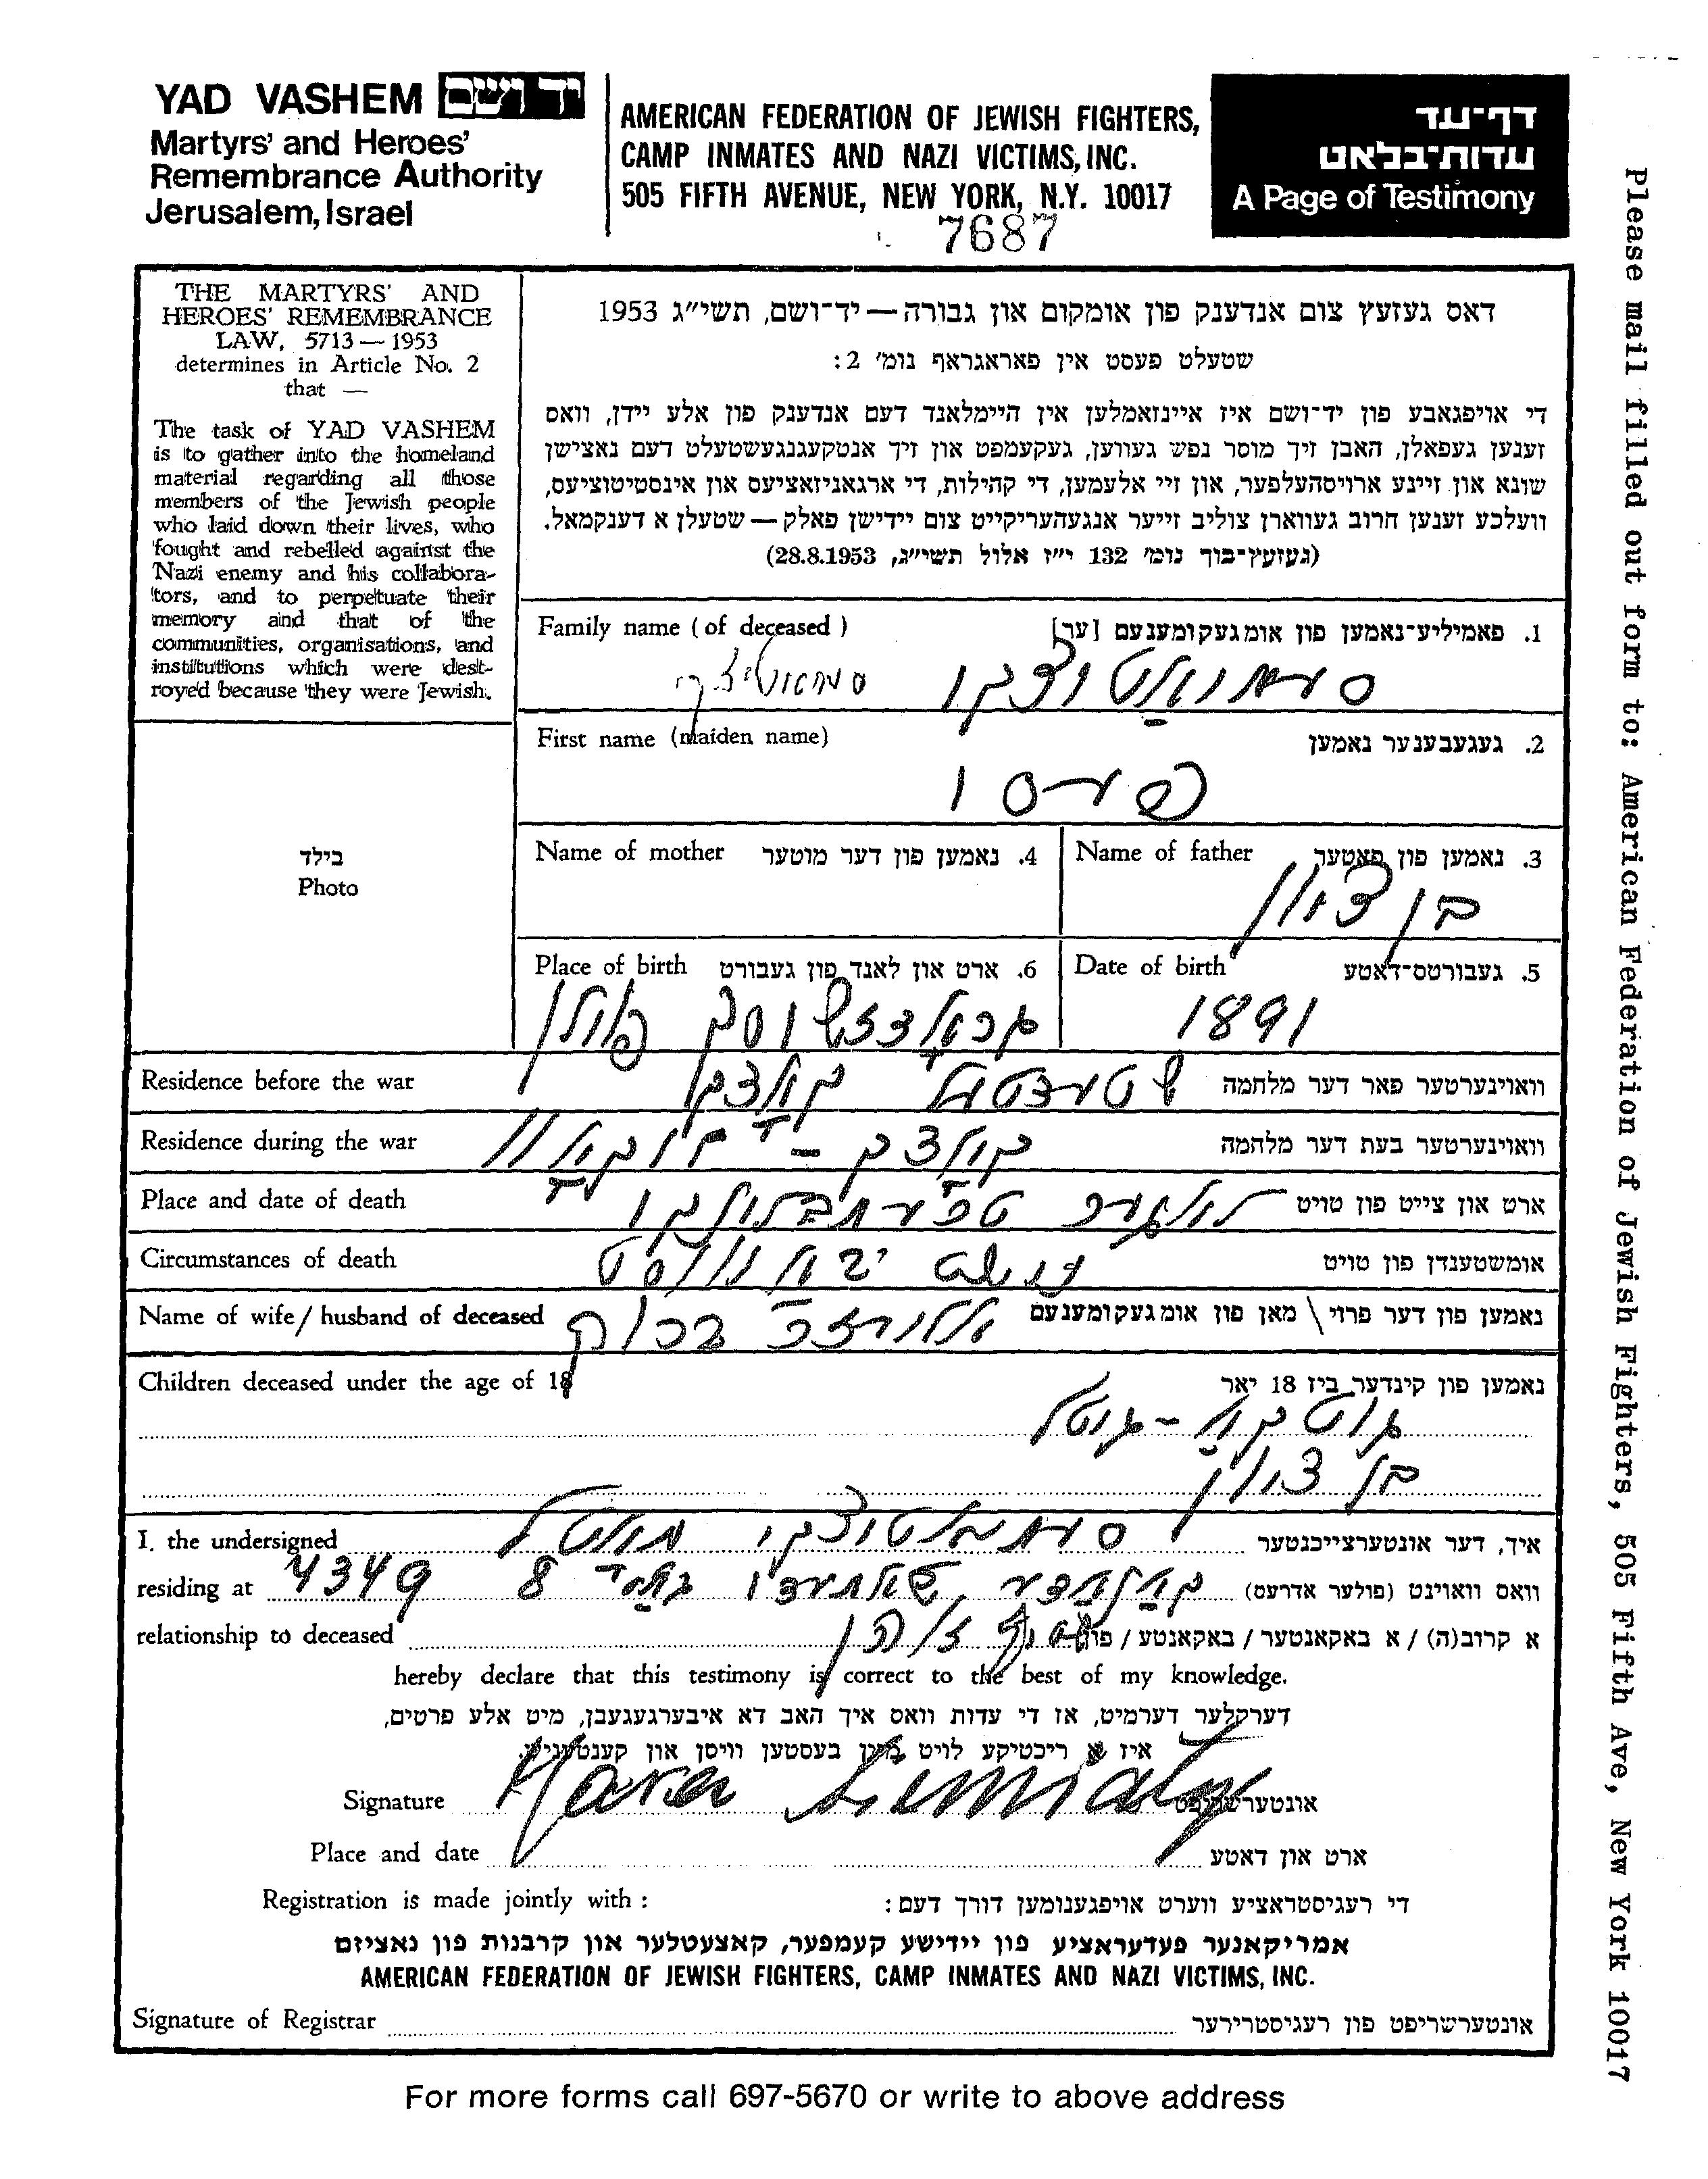 YAD VASHEM יד ושם
Martyrs' and Heroes'
Remembrance Authority
Jerusalem, Israel
AMERICAN FEDERATION OF JEWISH FIGHTERS,
CAMP INMATES AND NAZI VICTIMS, INC.
505 FIFTH AVENUE, NEW YORK, N.Y. 10017
7687
דף-עד
עדות-בלאט
A Page of Testimony
Please mail filled out form to: American Federation of Jewish Fighters, 505 Fifth Ave, New York 10017
THE MARTYRS' AND
HEROES' REMEMBRANCE
LAW, 5713 — 1953
determines in Article No. 2
that —
The task of YAD VASHEM
is to gather into the homeland
material regarding all those
members of the Jewish people
who laid down their lives, who
fought and rebelled against the
Nazi enemy and his collabora-
tors, and to perpetuate their
memory and that of the
communities, organisations, and
institutions which were dest-
royed because they were Jewish.
דאס געזעץ צום אנדענק פון אומקום און גבורה — יד-ושם, תשי״ג 1953
שטעלט פעסט אין פאראגראף נומ׳ 2:
די אויפגאבע פון יד-ושם איז איינזאמלען אין היימלאנד דעם אנדענק פון אלע יידן, וואס
זענען געפאלן, האבן זיך מוסר נפש געווען, געקעמפט און זיך אנטקעגנגעשטעלט דעם נאצישן
שונא און זיינע ארויסהעלפער, און זיי אלעמען, די קהילות, די ארגאניזאציעס און אינסטיטוציעס,
וועלכע זענען חרוב געווארן צוליב זייער אנגעהעריקייט צום יידישן פאלק — שטעלן א דענקמאל.
(געזעץ-בוך נומ׳ 132 י״ז אלול תשי״ג, 28.8.1953)
Family name (of deceased) 1. פאמיליע-נאמען פון אומגעקומענעם [ער]
First name (maiden name) 2. געגעבענער נאמען
פעסי
Name of mother 4. נאמען פון דער מוטער
Name of father 3. נאמען פון פאטער
בן ציון
Place of birth 6. ארט און לאנד פון געבורט
פוילן
Date of birth 5. געבורטס-דאטע
1891
בילד
Photo
Residence before the war שטעטל קאלק וואוינערטער פאר דער מלחמה
Residence during the war וואוינערטער בעת דער מלחמה
Place and date of death ארט און צייט פון טויט
Circumstances of death אומשטענדן פון טויט
Name of wife / husband of deceased נאמען פון דער פרוי \ מאן פון אומגעקומענעם
Children deceased under the age of 18 נאמען פון קינדער ביז 18 יאר
בן ציון
I, the undersigned איך, דער אונטערצייכנטער
residing at 4349 8 וואס וואוינט (פולער אדרעס)
relationship to deceased א קרוב(ה) / א באקאנטער / באקאנטע / פון
hereby declare that this testimony is correct to the best of my knowledge.
דערקלער דערמיט, אז די עדות וואס איך האב דא איבערגעגעבן, מיט אלע פרטים,
איז א ריכטיקע לויט מיין בעסטען וויסן און קענטעניש.
Signature אונטערשריפט
Place and date ארט און דאטע
Registration is made jointly with: די רעגיסטראציע ווערט אויפגענומען דורך דעם:
אמריקאנער פעדעראציע פון יידישע קעמפער, קאצעטלער און קרבנות פון נאציזם
AMERICAN FEDERATION OF JEWISH FIGHTERS, CAMP INMATES AND NAZI VICTIMS, INC.
Signature of Registrar אונטערשריפט פון רעגיסטרירער
For more forms call 697-5670 or write to above address